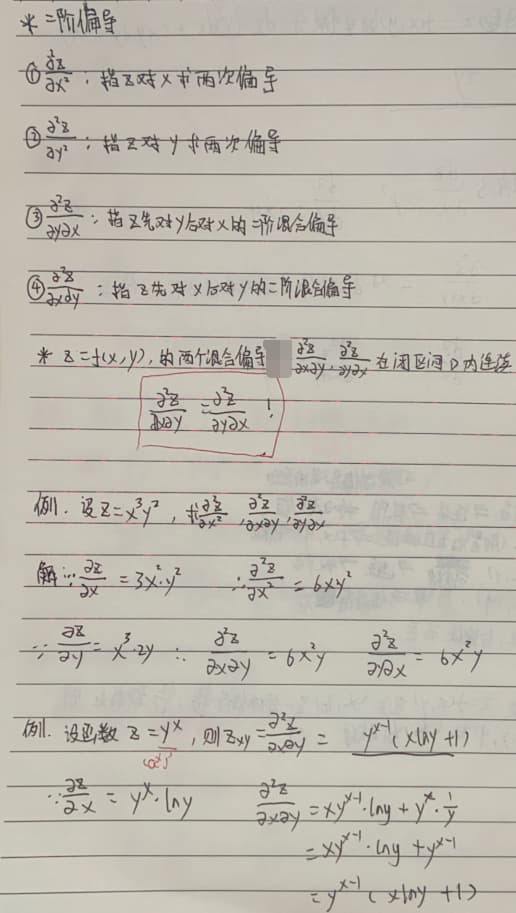 * 二阶偏导
① ∂²z/∂x² : 指z对x求两次偏导
② ∂²z/∂y² : 指z对y求两次偏导
③ ∂²z/∂y∂x : 指z先对y后对x的二阶混合偏导
④ ∂²z/∂x∂y : 指z先对x后对y的二阶混合偏导
* z=f(x,y), 的两个混合偏导 ∂²z/∂x∂y, ∂²z/∂y∂x 在闭区间D内连续
∂²z/∂x∂y = ∂²z/∂y∂x !
例. 设z=x³y², 求∂²z/∂x², ∂²z/∂x∂y, ∂²z/∂y∂x
解 ∵ ∂z/∂x = 3x²·y² ∴ ∂²z/∂x² = 6xy²
∵ ∂z/∂y = x³·2y ∴ ∂²z/∂x∂y = 6x²y ∂²z/∂y∂x = 6x²y
例. 设函数 z=y^x, 则 z_xy = ∂²z/∂x∂y = y^(x-1) (xlny+1)
(a^x)'
∵ ∂z/∂x = y^x·lny ∂²z/∂x∂y = xy^(x-1)·lny + y^x·1/y
= xy^(x-1)·lny + y^(x-1)
= y^(x-1) (xlny+1)